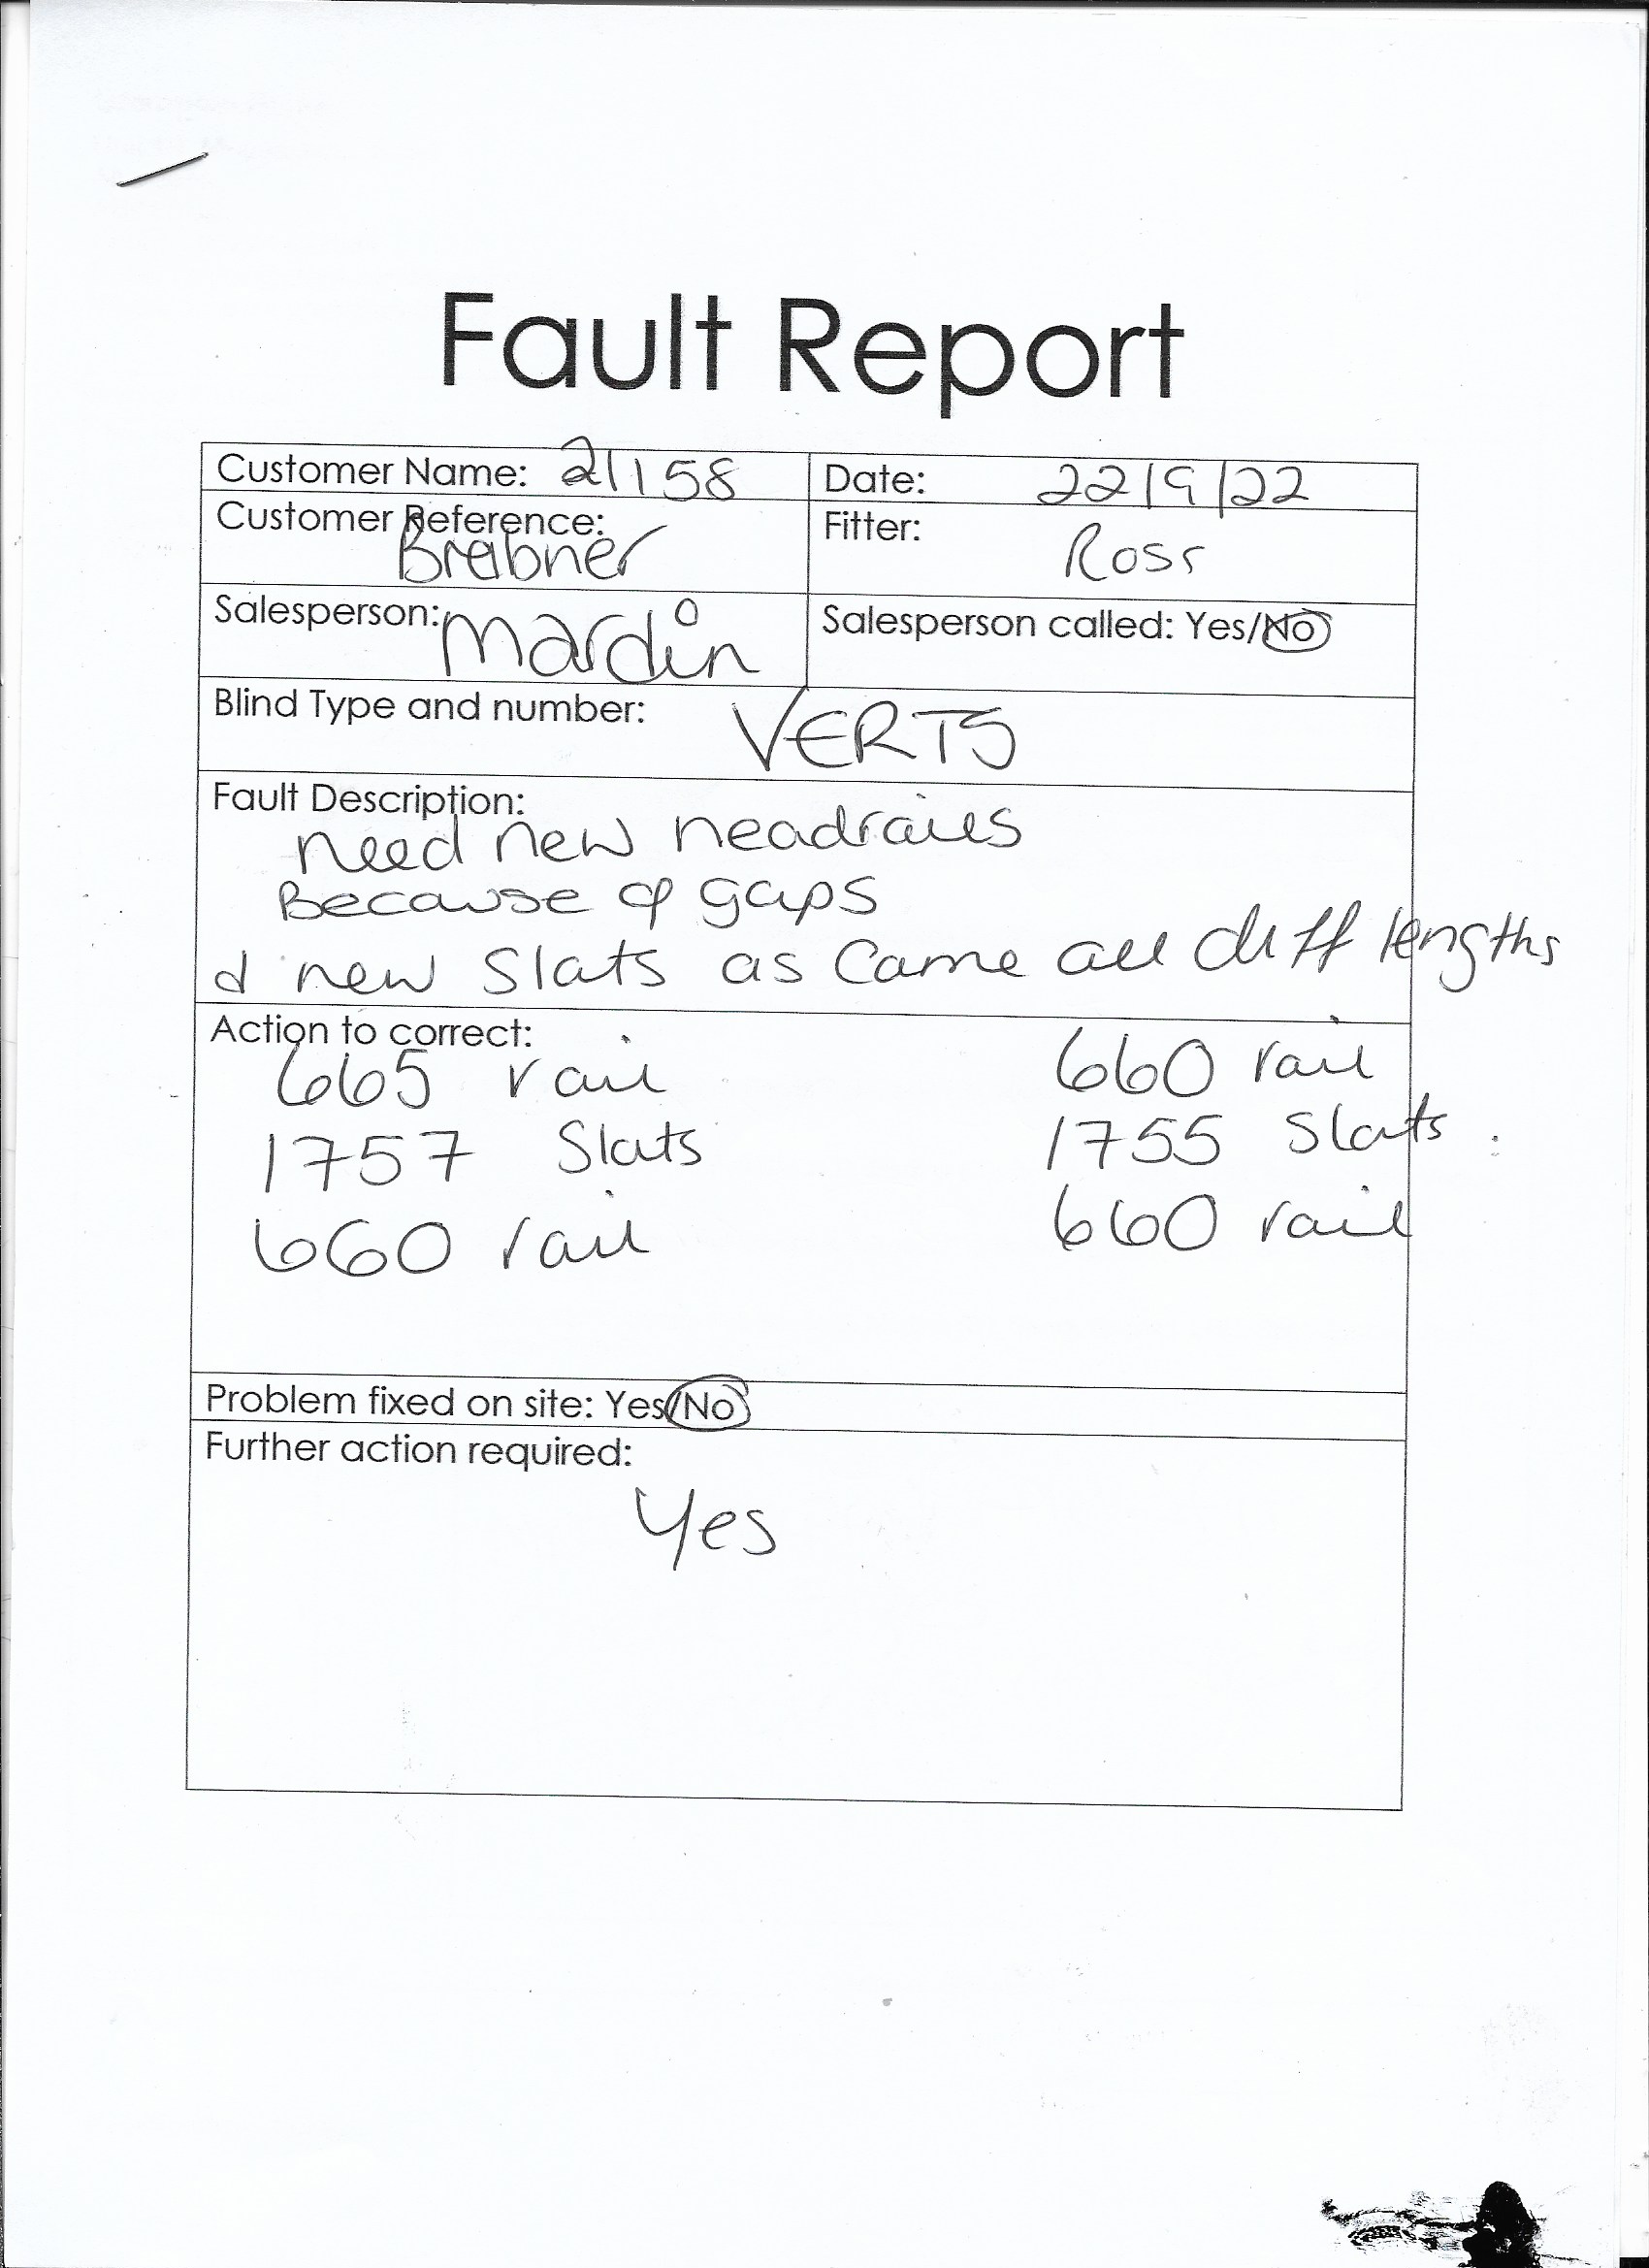 Fault Report
Customer Name: 21158
Date: 22/9/22
Customer Reference: Brebner
Fitter: Ross
Salesperson: Mardin
Salesperson called: Yes/No
Blind Type and number: VERTS
Fault Description:
need new headrails
Because of gaps
& new Slats as Came all diff lengths
Action to correct:
665 rail 660 rail
1757 Slats 1755 Slats
660 rail 660 rail
Problem fixed on site: Yes/No
Further action required:
Yes